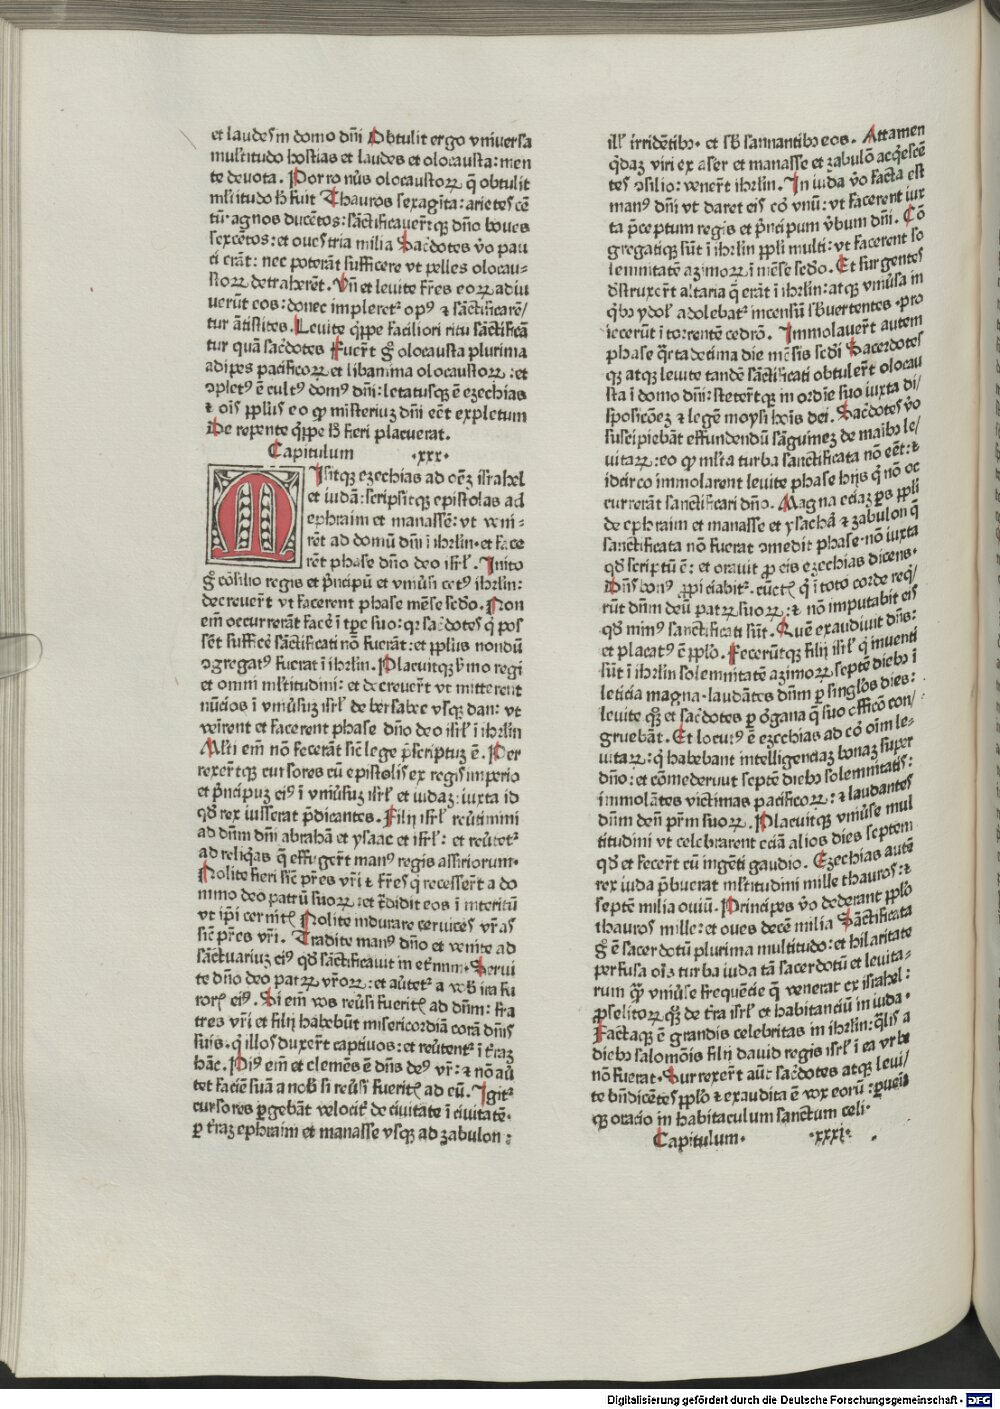 et laudes in domo dñi Obtulit ergo vniuersa
multitudo hostias et laudes et olocausta: men
te deuota. Porro nūs olocaustoꝝ q̄ obtulit
ml̄titudo h̄ fuit Thauros sexagīta: arietes cē
tū· agnos ducētos: sāctificauer̄tqꝫ dño boues
sexcētos: et oues tria milia Sac̄dotes v̄o pau
ci erāt: nec poterāt sufficere vt pelles olocau-
stoꝝ detraherēt. Vñ et leuite fr̄es eoꝝ adiu
uerūt eos: donec impleret᷑ opꝰ ⁊ sāctificarē/
tur ātistites. Leuite q̄ppe faciliori ritu sāctificā
tur quā sac̄dotes Fuer̄t g̊ olocausta plurima
adipes pacificoꝝ et libamina olocaustoꝝ: et
ↄpletꝰ ē cultꝰ domꝰ dñi: letatusqꝫ ē ezechias
⁊ oīs ppl̄us eo ꝙ misteriuꝫ dñi eēt expletum
De repente q̄ppe h̄ fieri placuerat.
Capitulum ·xxx·
MIsitqꝫ ezechias ad oēꝫ israhel
et iudā: scripsitqꝫ epistolas ad
ephraim et manassē: vt veni-
rēt ad domū dñi ī ihrl̄in· et face
rēt phase dño deo isrl̄. Inito
g̊ cōsilio regis et p̄ncipū et vniūsi cetꝰ ihrl̄in:
decreuer̄t vt facerent phase mēse sc̄do. Non
eīn occurrerāt facē ī tp̄e suo: qꝛ sac̄dotes q̄ pos
sēt sufficē sāctificati nō fuerāt: et ppl̄us nondū
ↄgregatꝰ fuerat ī ihrl̄in. Placuitqꝫ ẜmo regi
et omni ml̄titudini: et decreuer̄t vt mitterent
nūcios ī vniūsuꝫ isrl̄ de bersabee vsqꝫ dan: vt
veīrent et facerent phase dño deo isrl̄ ī ihrl̄in
Ml̄ti eīn nō fecerāt sic̄ lege p̄scriptuꝫ ē. Per
rexer̄tqꝫ cursores cū epistolis ex regis imperio
et p̄ncipuꝫ eiꝰ ī vniūsuꝫ isrl̄ et iudaꝫ: iuxta id
qd̄ rex iusserat p̄dicantes. Filij isrl̄ reūtimini
ad dñm dñi abrahā et ysaac et isrl̄: et reūtet᷑
ad reliq̄as q̄ effugert̄ manꝰ regis assiriorum·
Nolite fieri sic̄ pr̄es vr̄i ⁊ fr̄es q̄ recesser̄t a do
mino deo patrū suoꝝ: et t̄didit eos ī interitū
vt ip̄i cernitꝭ Nolite indurare ceruices vr̄as
sic̄ pr̄es vr̄i. Tradite manꝰ dño et venite ad
sāctuariuꝫ eiꝰ qd̄ sāctificauit in et̄nnm· Serui
te dño deo patꝝ vr̄oꝝ: et aūtet᷑ a vob̄ ira fu
rorꝭ eiꝰ. Si eīn vos reūsi fueritꝭ ad dñm: fra
tres vr̄i et filij habebūt misericordiā corā dñis
suis. q̄ illos duxer̄t captiuos: et reūtent᷑ ī t̄raꝫ
hāc. Piꝰ eīn et clemēs ē dñs deꝰ vr̄: ⁊ nō aū
tet faciē suā a nob̄ si reūsi fueritꝭ ad eū. Igit᷑
cursores ꝑgebāt velocit̄ de ciuitate ī ciuitatē·
ꝑ t̄raꝫ ephraim et manasse vsqꝫ ad zabulon:
ill̄ irridētibꝰ· et sb̄sannantibꝰ eos. Attamen
q̄daꝫ viri ex aser et manasse et zabulō acq̄escē
tes ↄsilio: vener̄t ihrl̄in. In iuda v̄o facta est
manꝰ dñi vt daret eis cō vnū: vt facerent iux
ta p̄ceptum regis et p̄ncipum v̄bum dñi. Cō
gregatiqꝫ sūt ī ihrl̄in ppl̄i multi: vt facerent so
lemnitatē azimoꝝ ī mēse sc̄do. Et surgentes
dstruxer̄t altaria q̄ erāt ī ihrl̄in: atqꝫ vniūsa in
q̄bꝰ ydol̄ adolebat᷑ incensū sb̄uertentes · pro
iecerūt ī torrentē cedrō. Immolauer̄t autem
phase q̄rtadecima die mēsis sc̄di Sacerdotes
qꝫ atqꝫ leuite tandē sāctificati obtuler̄t olocau
sta ī domo dñi: steter̄tqꝫ in ordīe suo iuxta di/
sposicōeꝫ ⁊ legē moysi hoīs dei. Sac̄dotes v̄o
suscipiebāt effundendū sāguineꝫ de maībꝰ le/
uitaꝝ: eo ꝙ ml̄ta turba sanctificata nō eēt: ⁊
idcirco immolarent leuite phase hijs q̄ nō oc
currerāt sanctificari dño. Magna eciaꝫ ꝑs ppl̄i
de ephraim et manasse et ysachā ⁊ zabulon q̄
sanctificata nō fuerat ↄmedit phase· nō iuxta
qd̄ scriptū ē: et orauit ꝓ eis ezechias dicens·
Dñs bonꝰ ꝓpiciabit᷑ cūctꝭ q̄ ī toto corde req̄/
rūt dñm deū patꝝ suoꝝ: ⁊ nō imputabit eis
qd̄ minꝰ sanctificati sūt. Quē exaudiuit dñs:
et placatꝰ ē ppl̄o. Fecerūtqꝫ filij isrl̄ q̄ inuenti
sūt ī ihrl̄in solemnitatē azimoꝝ septē diebꝰ ī
leticia magna· laudātes dñm ꝑ singl̄os dies:
leuite qꝫ et sac̄dotes ꝑ ōgana q̄ suo officō con/
gruebāt. Et locutꝰ ē ezechias ad cō oīm le-
uitaꝝ: q̄ habebant intelligenciaꝫ bonaꝫ super
dño: et cōmederunt septē diebꝰ solemnitatis:
immolātes victimas pacificoꝝ: ⁊ laudantes
dñm deū pr̄m suoꝝ. Placuitqꝫ vniūse mul
titudini vt celebrarent eciā alios dies septem
qd̄ et fecer̄t cū ingēti gaudio. Ezechias autē
rex iuda p̄buerat ml̄titudini mille thauros: ⁊
septē milia ouiū. Principes v̄o dederant ppl̄o
thauros mille: et oues decē milia Sāctificata
g̊ ē sacerdotū plurima multitudo: et hilaritate
perfusa oīs turba iuda tā sacerdotū et leuita-
rum q̄ꝫ vniūse frequēcie q̄ venerat ex israhel:
ꝓselitoꝝ qꝫ de t̄ra isrl̄ et habitanciū in iuda·
Factaqꝫ ē grandis celebritas in ihrl̄in: q̄lis a
diebꝰ salomōis filij dauid regis isrl̄ ī ea vrbe
nō fuerat· Surrexer̄t aūt sac̄dotes atqꝫ leui/
te bn̄dicētes ppl̄o ⁊ exaudita ē vox eorū: ꝑuenit
qꝫ oracio in habitaculum sanctum celi·
Capitulum· ·xxxi·
Digitalisierung gefördert durch die Deutsche Forschungsgemeinschaft - DFG